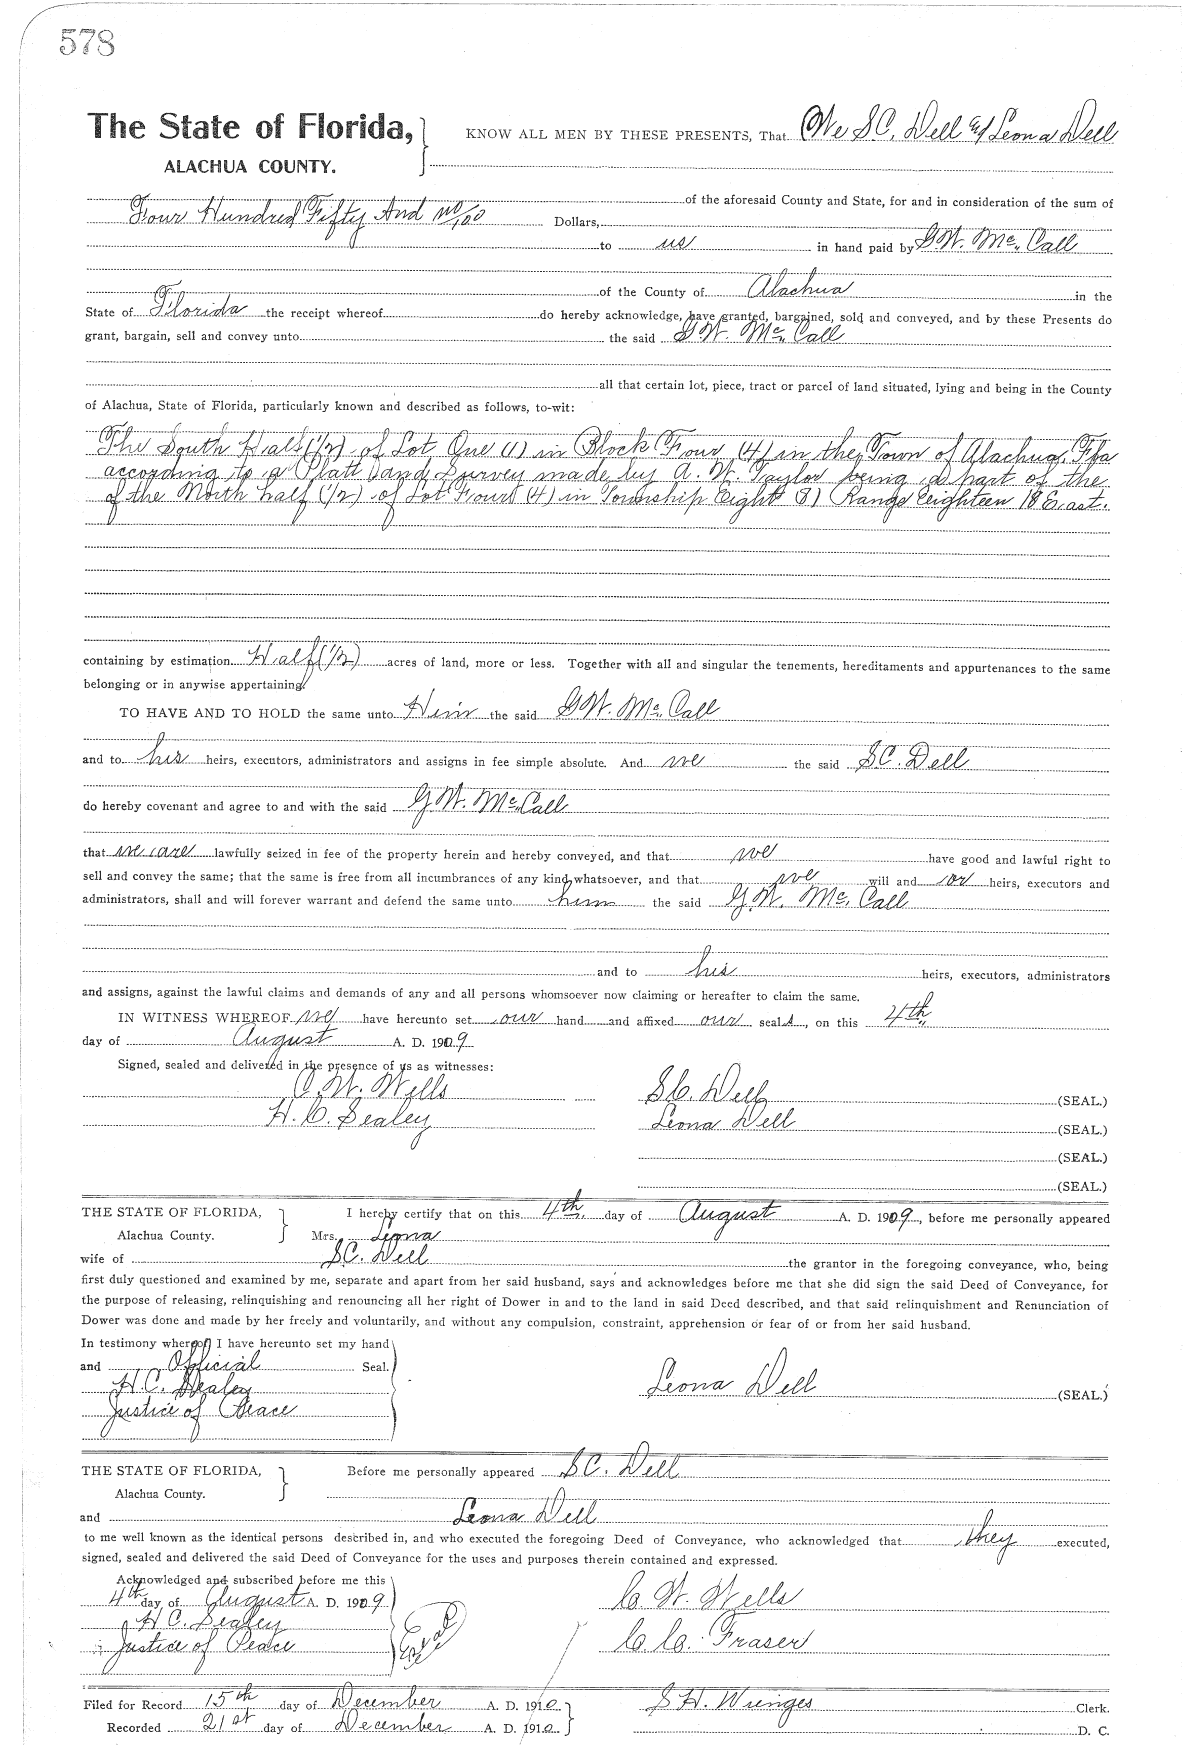 578
The State of Florida, KNOW ALL MEN BY THESE PRESENTS, That We S.C. Dell & Leona Dell
ALACHUA COUNTY.
of the aforesaid County and State, for and in consideration of the sum of
Four Hundred Fifty And no/100 Dollars,
to us in hand paid by G.W. McCall
of the County of Alachua in the
State of Florida the receipt whereof do hereby acknowledge, have granted, bargained, sold and conveyed, and by these Presents do
grant, bargain, sell and convey unto the said G.W. McCall
all that certain lot, piece, tract or parcel of land situated, lying and being in the County
of Alachua, State of Florida, particularly known and described as follows, to-wit:
The South Half (1/2) of Lot One (1) in Block Four (4) in the Town of Alachua, Fla
according to a Platt and Survey made by A. W. Taylor being a part of the
of the North half (1/2) of Lot Four (4) in Township Eight 8) Range Eighteen 18 East.
containing by estimation Half (1/2) acres of land, more or less. Together with all and singular the tenements, hereditaments and appurtenances to the same
belonging or in anywise appertaining.
TO HAVE AND TO HOLD the same unto Him the said G.W. McCall
and to his heirs, executors, administrators and assigns in fee simple absolute. And we the said S.C. Dell
do hereby covenant and agree to and with the said G.W. McCall
that we are lawfully seized in fee of the property herein and hereby conveyed, and that we have good and lawful right to
sell and convey the same; that the same is free from all incumbrances of any kind whatsoever, and that we will and or heirs, executors and
administrators, shall and will forever warrant and defend the same unto him the said G.W. McCall
and to his heirs, executors, administrators
and assigns, against the lawful claims and demands of any and all persons whomsoever now claiming or hereafter to claim the same.
IN WITNESS WHEREOF we have hereunto set our hand and affixed our seals, on this 4th
day of August A. D. 1909
Signed, sealed and delivered in the presence of us as witnesses:
C. W. Wells S.C. Dell (SEAL.)
H. C. Sealey Leona Dell (SEAL.)
(SEAL.)
(SEAL.)
THE STATE OF FLORIDA, I hereby certify that on this 4th day of August A. D. 1909, before me personally appeared
Alachua County. Mrs. Leona
wife of S.C. Dell the grantor in the foregoing conveyance, who, being
first duly questioned and examined by me, separate and apart from her said husband, says and acknowledges before me that she did sign the said Deed of Conveyance, for
the purpose of releasing, relinquishing and renouncing all her right of Dower in and to the land in said Deed described, and that said relinquishment and Renunciation of
Dower was done and made by her freely and voluntarily, and without any compulsion, constraint, apprehension or fear of or from her said husband.
In testimony whereof I have hereunto set my hand
and Official Seal.
H.C. Sealey Leona Dell (SEAL.)
Justice of Peace
THE STATE OF FLORIDA, Before me personally appeared S.C. Dell
Alachua County.
and Leona Dell
to me well known as the identical persons described in, and who executed the foregoing Deed of Conveyance, who acknowledged that they executed,
signed, sealed and delivered the said Deed of Conveyance for the uses and purposes therein contained and expressed.
Acknowledged and subscribed before me this
4th day of August A. D. 1909 C. W. Wells
H C. Sealey (Seal)
Justice of Peace C. C. Fraser
Filed for Record 15th day of December A. D. 1910 S.H. Wienges Clerk.
Recorded 21st day of December A. D. 1910 D. C.